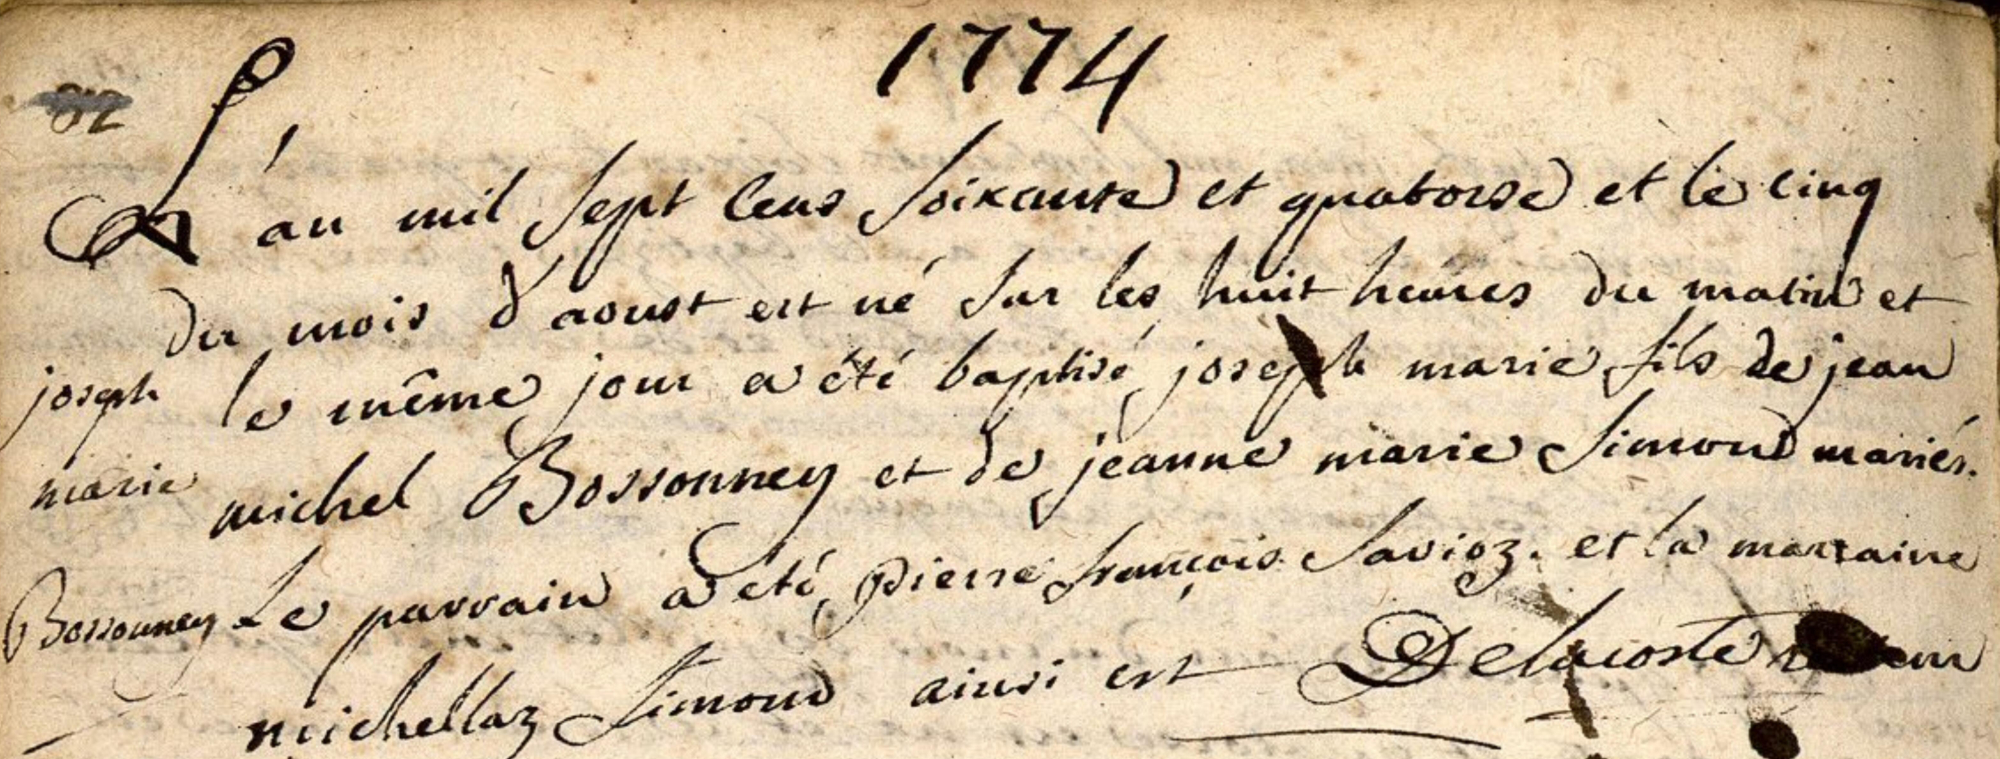 1774
L'an mil sept cens soixante et quatorse et le cinq
du mois d'aoust est né sur les huit heures du matin et
joseph le même jour a été baptisé joseph marie fils de jean
marie michel Bossonney et de jeanne marie Simond mariés.
Bossonney Le parrain a été pierre françois Savioz. et la marraine
michellaz Simond ainsi est Delacoste